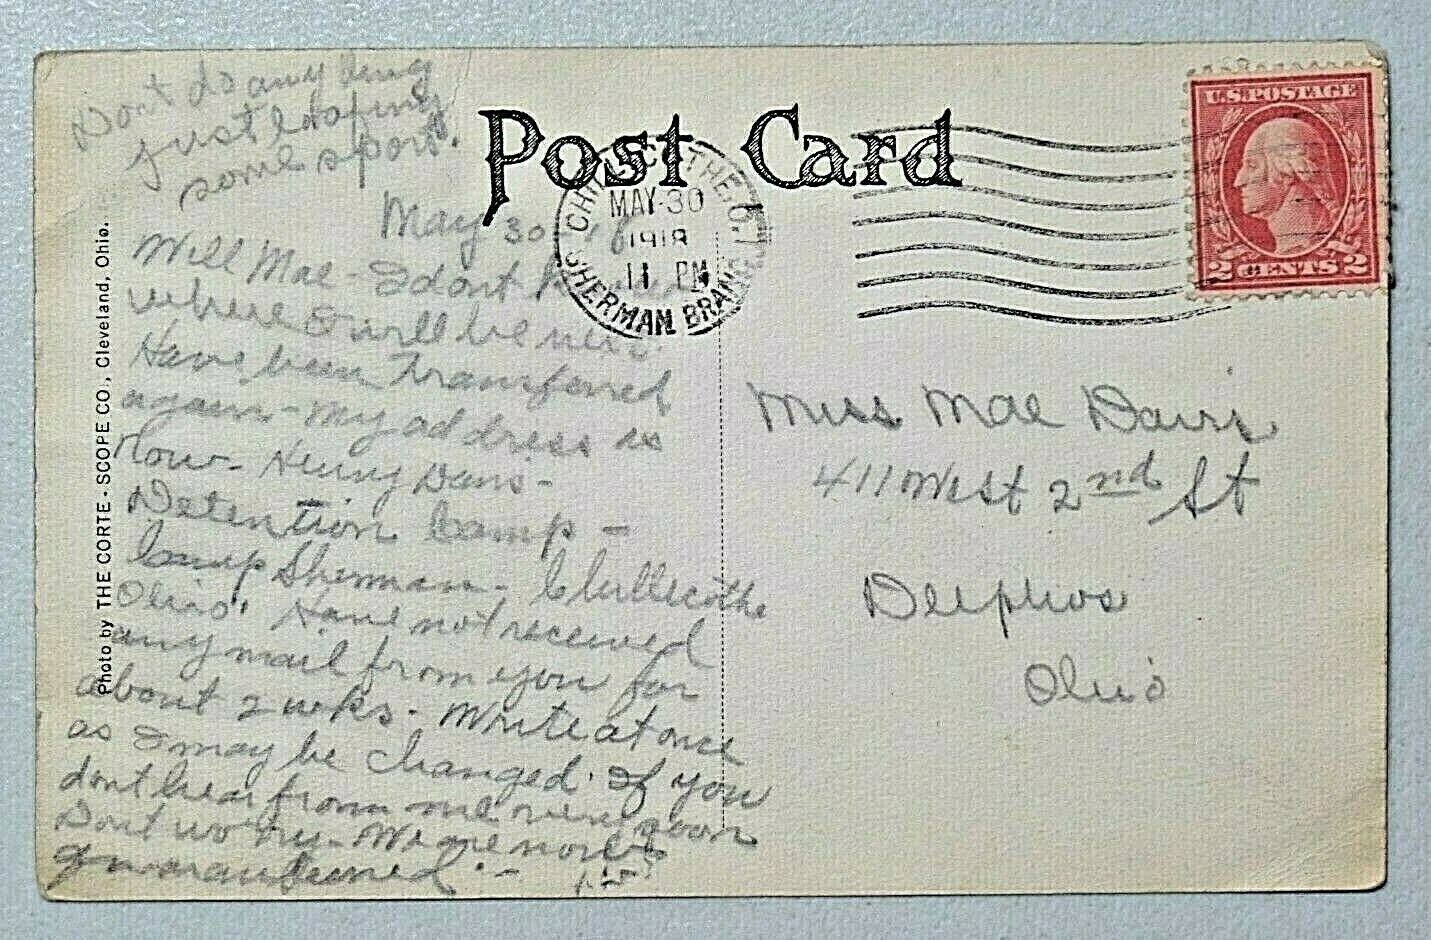 Dont do any thing
just loafing
some sport.
Post Card
U.S. POSTAGE
2 CENTS 2
CHILLICOTHE, O.
MAY 30
1918
11 PM
SHERMAN BRANCH
May 30 - 18
Well Mae - I dont know
where I will be next.
Have been Transferred
again - My address is
Now - Henry Davis -
Detention Camp -
Camp Sherman - Chillicothe
Ohio. Have not received
any mail from you for
about 2 wks. Write at once
as I may be changed. If you
dont hear from me very soon
Dont worry - We are now
quarantined. -
Miss Mae Davis
411 West 2nd St
Delphos
Ohio
Photo by THE CORTE-SCOPE CO., Cleveland, Ohio.